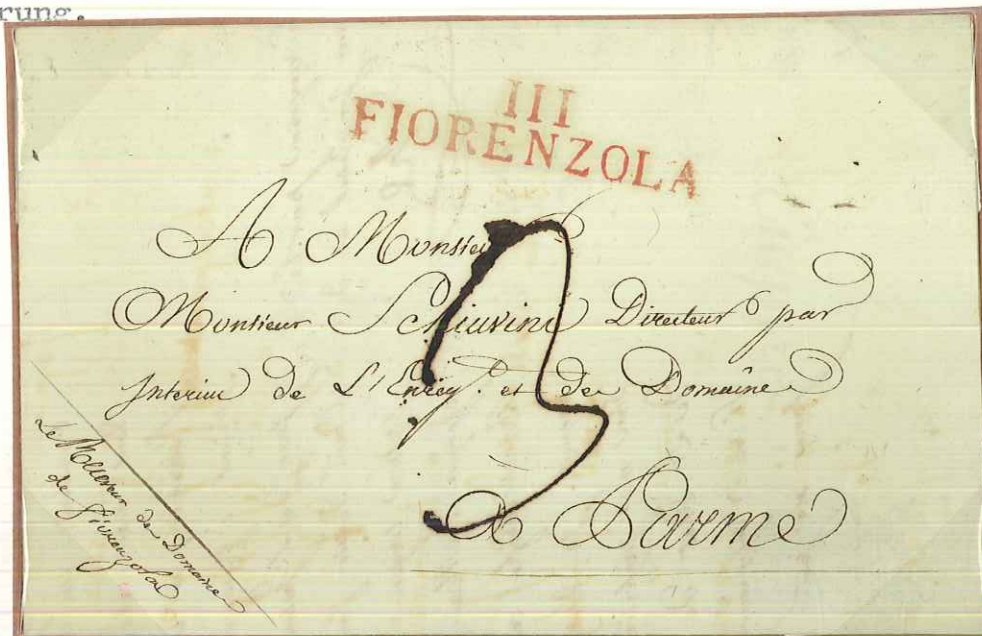 rung.
III
FIORENZOLA
A Monsieur
Monsieur Schiavini Directeur par
Interim de L'Enreg.t et de Domaine
3
à Parme
Le Receveur de Domaine
de Fiorenzola